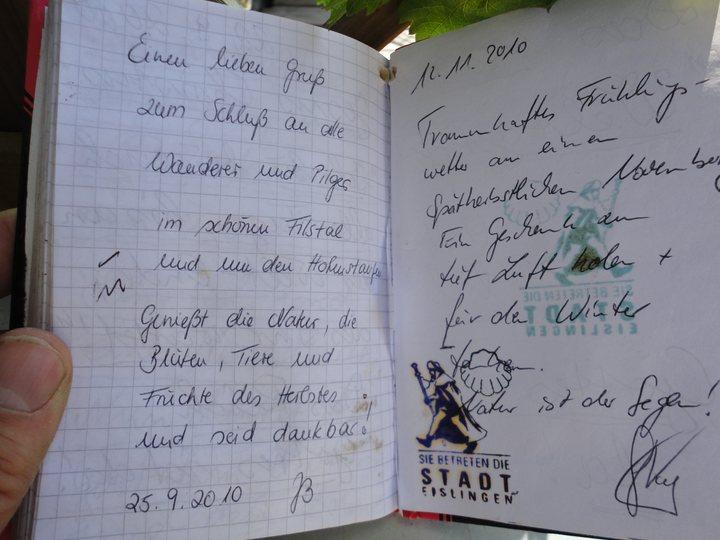 Einen lieben Gruß
zum Schluß an alle
Wanderer und Pilger
im schönen Filstal
und um den Hohenstaufen
Genießt die Natur, die
Blüten, Tiere und
Früchte des Herbstes
und seid dankbar!
25.9.2010 JB
12.11.2010
Traumhaftes Frühlings-
wetter an einem
spätherbstlichen
Ein Geschenk um
tief Luft holen +
für den Winter
Natur ist der Segen!
SIE BETRETEN DIE
STADT
EISLINGEN
SIE BETRETEN DIE
STADT
EISLINGEN